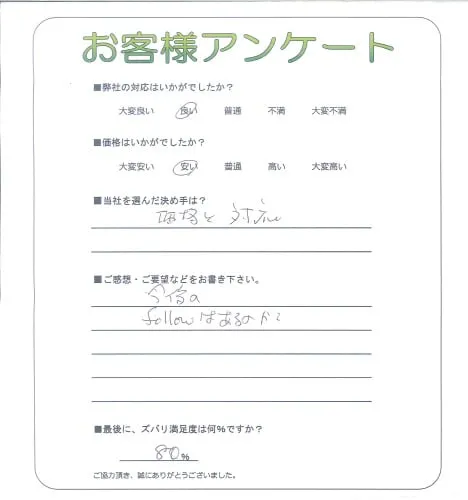 お客様アンケート
■弊社の対応はいかがでしたか？
大変良い 良い 普通 不満 大変不満
■価格はいかがでしたか？
大変安い 安い 普通 高い 大変高い
■当社を選んだ決め手は？
価格と 対応
■ご感想・ご要望などをお書き下さい。
今後の
followはあるのか？
■最後に、ズバリ満足度は何%ですか？
80%
ご協力頂き、誠にありがとうございました。